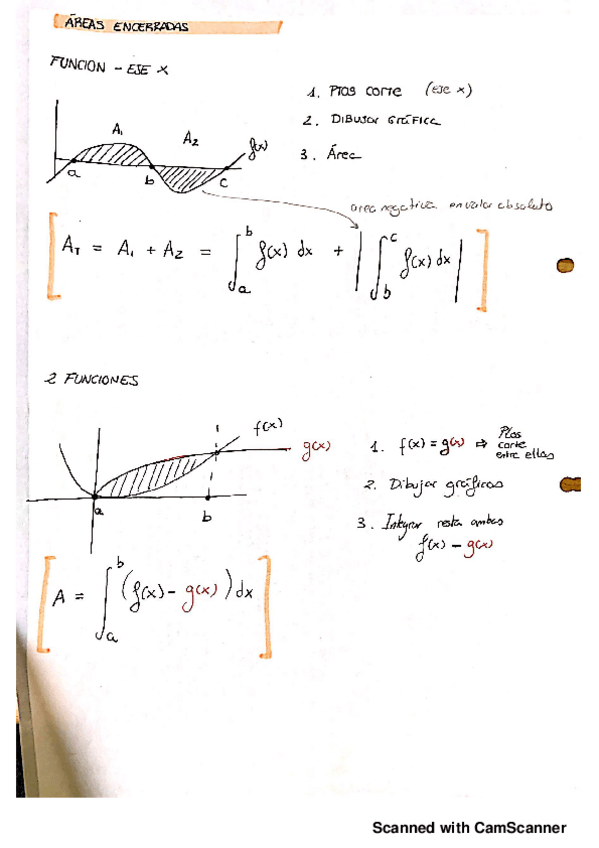 ÁREAS ENCERRADAS
FUNCION - EJE X
1. Ptos corte (eje x)
2. DIBUJAR GRÁFICA
3. Área
A₁
A₂
f(x)
a
b
c
area negativa en valor absoluto
[ A_T = A₁ + A₂ = ∫_a^b f(x) dx + | ∫_b^c f(x) dx | ]
2 FUNCIONES
f(x)
g(x)
a
b
1. f(x) = g(x) ⇒ Ptos
corte
entre ellas
2. Dibujar gráficas
3. Integrar resta ambas
f(x) - g(x)
[ A = ∫_a^b (f(x) - g(x)) dx ]
Scanned with CamScanner